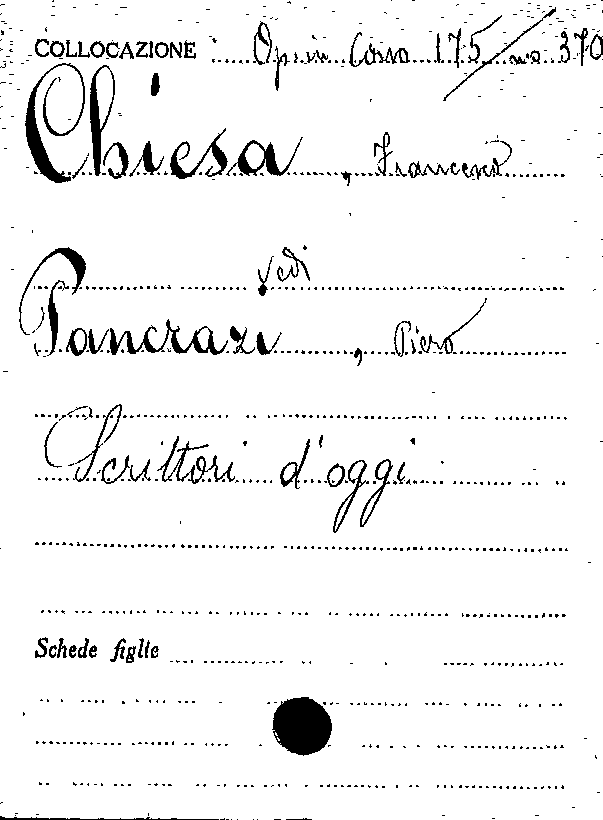 COLLOCAZIONE Op. in Corso 175/no 370
Chiesa, Francesco
vedi
Pancrazi, Piero
Scrittori d'oggi
Schede figlie